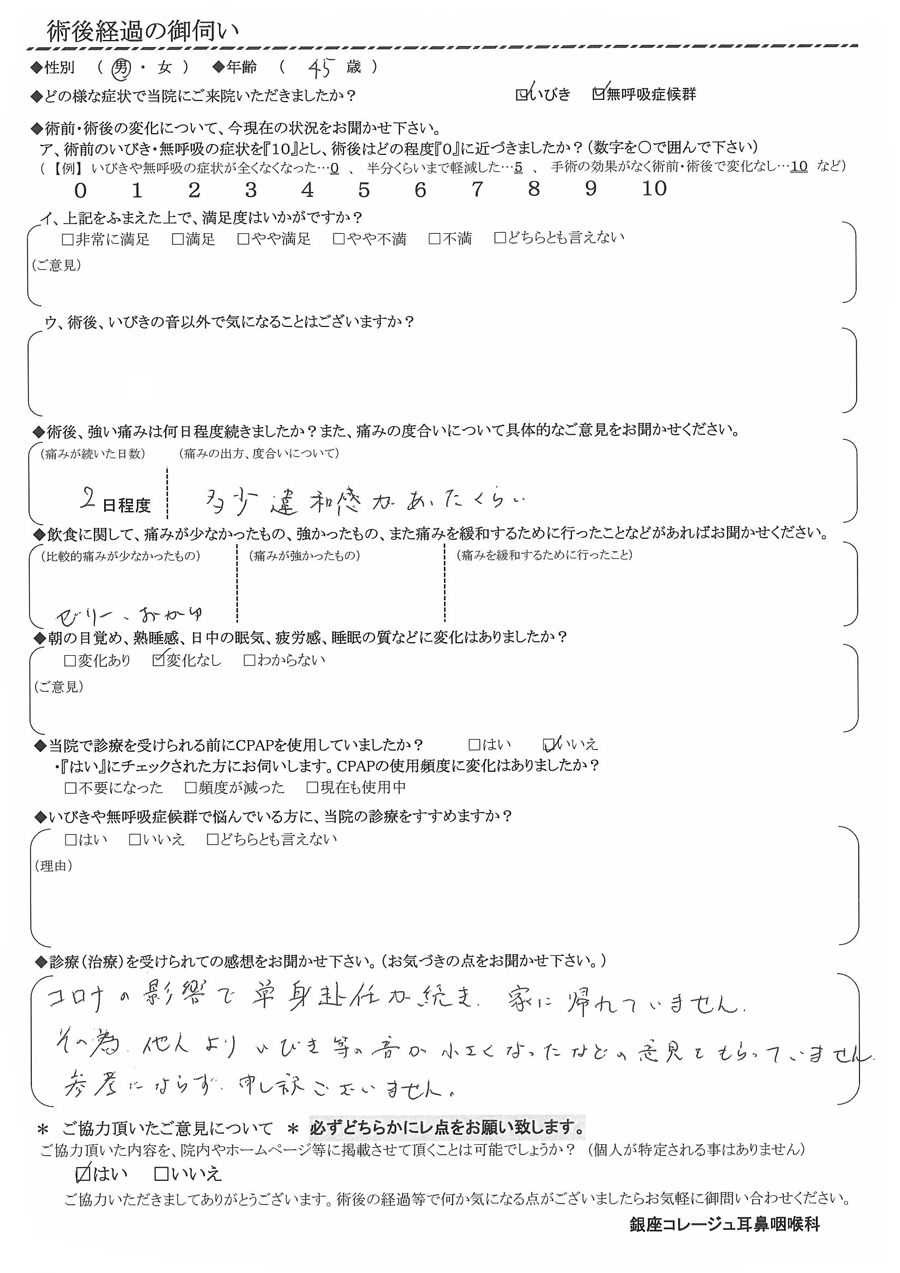 術後経過の御伺い
◆性別 ( 男 ・ 女 ) ◆年齢 ( 45 歳 )
◆どの様な症状で当院にご来院いただきましたか? ☑いびき ☑無呼吸症候群
◆術前・術後の変化について、今現在の状況をお聞かせ下さい。
ア、術前のいびき・無呼吸の症状を『10』とし、術後はどの程度『0』に近づきましたか?(数字を〇で囲んで下さい)
(【例】いびきや無呼吸の症状が全くなくなった…0 、 半分くらいまで軽減した…5 、 手術の効果がなく術前・術後で変化なし…10 など)
0 1 2 3 4 5 6 7 8 9 10
イ、上記をふまえた上で、満足度はいかがですか?
□非常に満足 □満足 □やや満足 □やや不満 □不満 □どちらとも言えない
(ご意見)
ウ、術後、いびきの音以外で気になることはございますか?
◆術後、強い痛みは何日程度続きましたか?また、痛みの度合いについて具体的なご意見をお聞かせください。
(痛みが続いた日数) (痛みの出方、度合いについて)
2 日程度 多少違和感があったくらい
◆飲食に関して、痛みが少なかったもの、強かったもの、また痛みを緩和するために行ったことなどがあればお聞かせください。
(比較的痛みが少なかったもの) (痛みが強かったもの) (痛みを緩和するために行ったこと)
ゼリー、おかゆ
◆朝の目覚め、熟睡感、日中の眠気、疲労感、睡眠の質などに変化はありましたか?
□変化あり ☑変化なし □わからない
(ご意見)
◆当院で診療を受けられる前にCPAPを使用していましたか? □はい ☑いいえ
・『はい』にチェックされた方にお伺いします。CPAPの使用頻度に変化はありましたか?
□不要になった □頻度が減った □現在も使用中
◆いびきや無呼吸症候群で悩んでいる方に、当院の診療をすすめますか?
□はい □いいえ □どちらとも言えない
(理由)
◆診療(治療)を受けられての感想をお聞かせ下さい。(お気づきの点をお聞かせ下さい。)
コロナの影響で単身赴任が続き、家に帰れていません。
その為、他人よりいびき等の音が小さくなったなどの意見をもらっていません。
参考にならず、申し訳ございません。
＊ ご協力頂いたご意見について ＊ 必ずどちらかにレ点をお願い致します。
ご協力頂いた内容を、院内やホームページ等に掲載させて頂くことは可能でしょうか?(個人が特定される事はありません)
☑はい □いいえ
ご協力いただきましてありがとうございます。術後の経過等で何か気になる点がございましたらお気軽に御問い合わせください。
銀座コレージュ耳鼻咽喉科